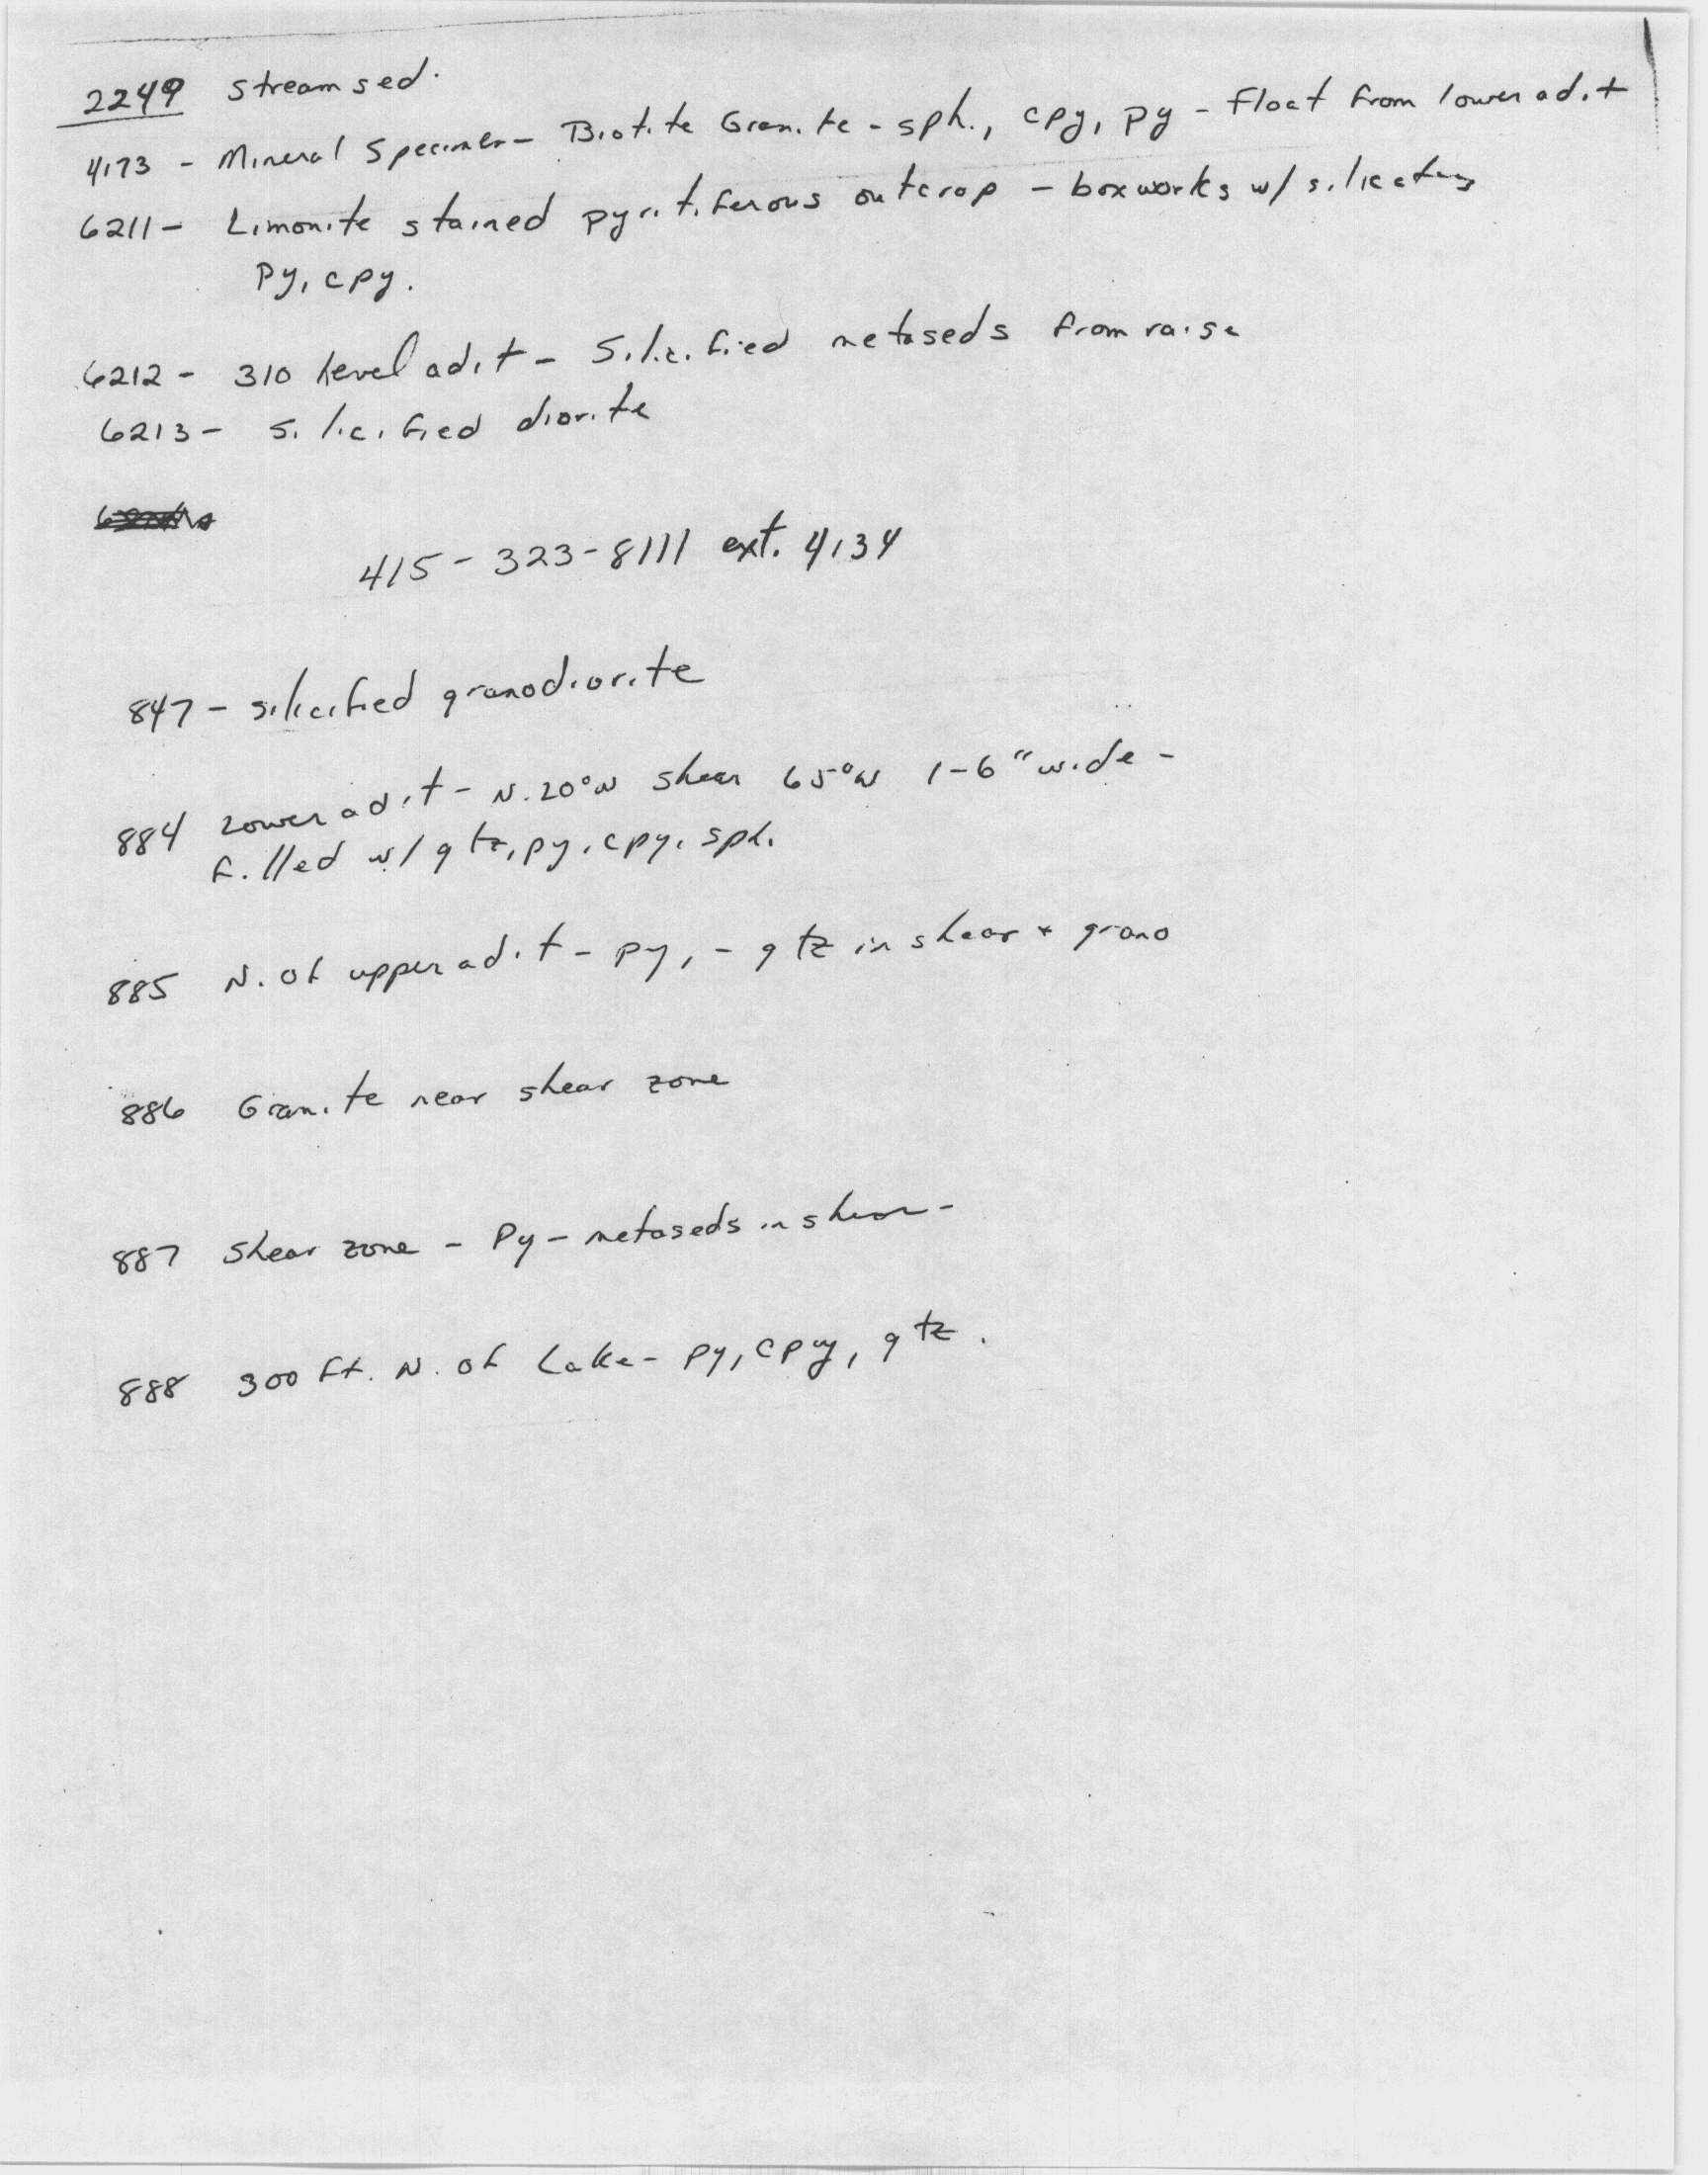 2249 stream sed.
4173 - Mineral Specimen - Biotite Granite - sph., cpy, py - Float from lower adit
6211 - Limonite stained pyritiferous outcrop - boxworks w/
py, cpy.
6212 - 310 level adit - Silicified metaseds from raise
6213 - silicified diorite
415-323-8111 ext. 4134
847 - silicified granodiorite
884 Lower adit - N.20°W shear 65°W 1-6" wide -
filled w/ qtz, py, cpy, sph.
885 N. of upper adit - py, - qtz in shear + grano
886 Granite near shear zone
887 Shear zone - Py - metaseds in shear -
888 300 ft. N. of Lake - py, cpy, qtz.